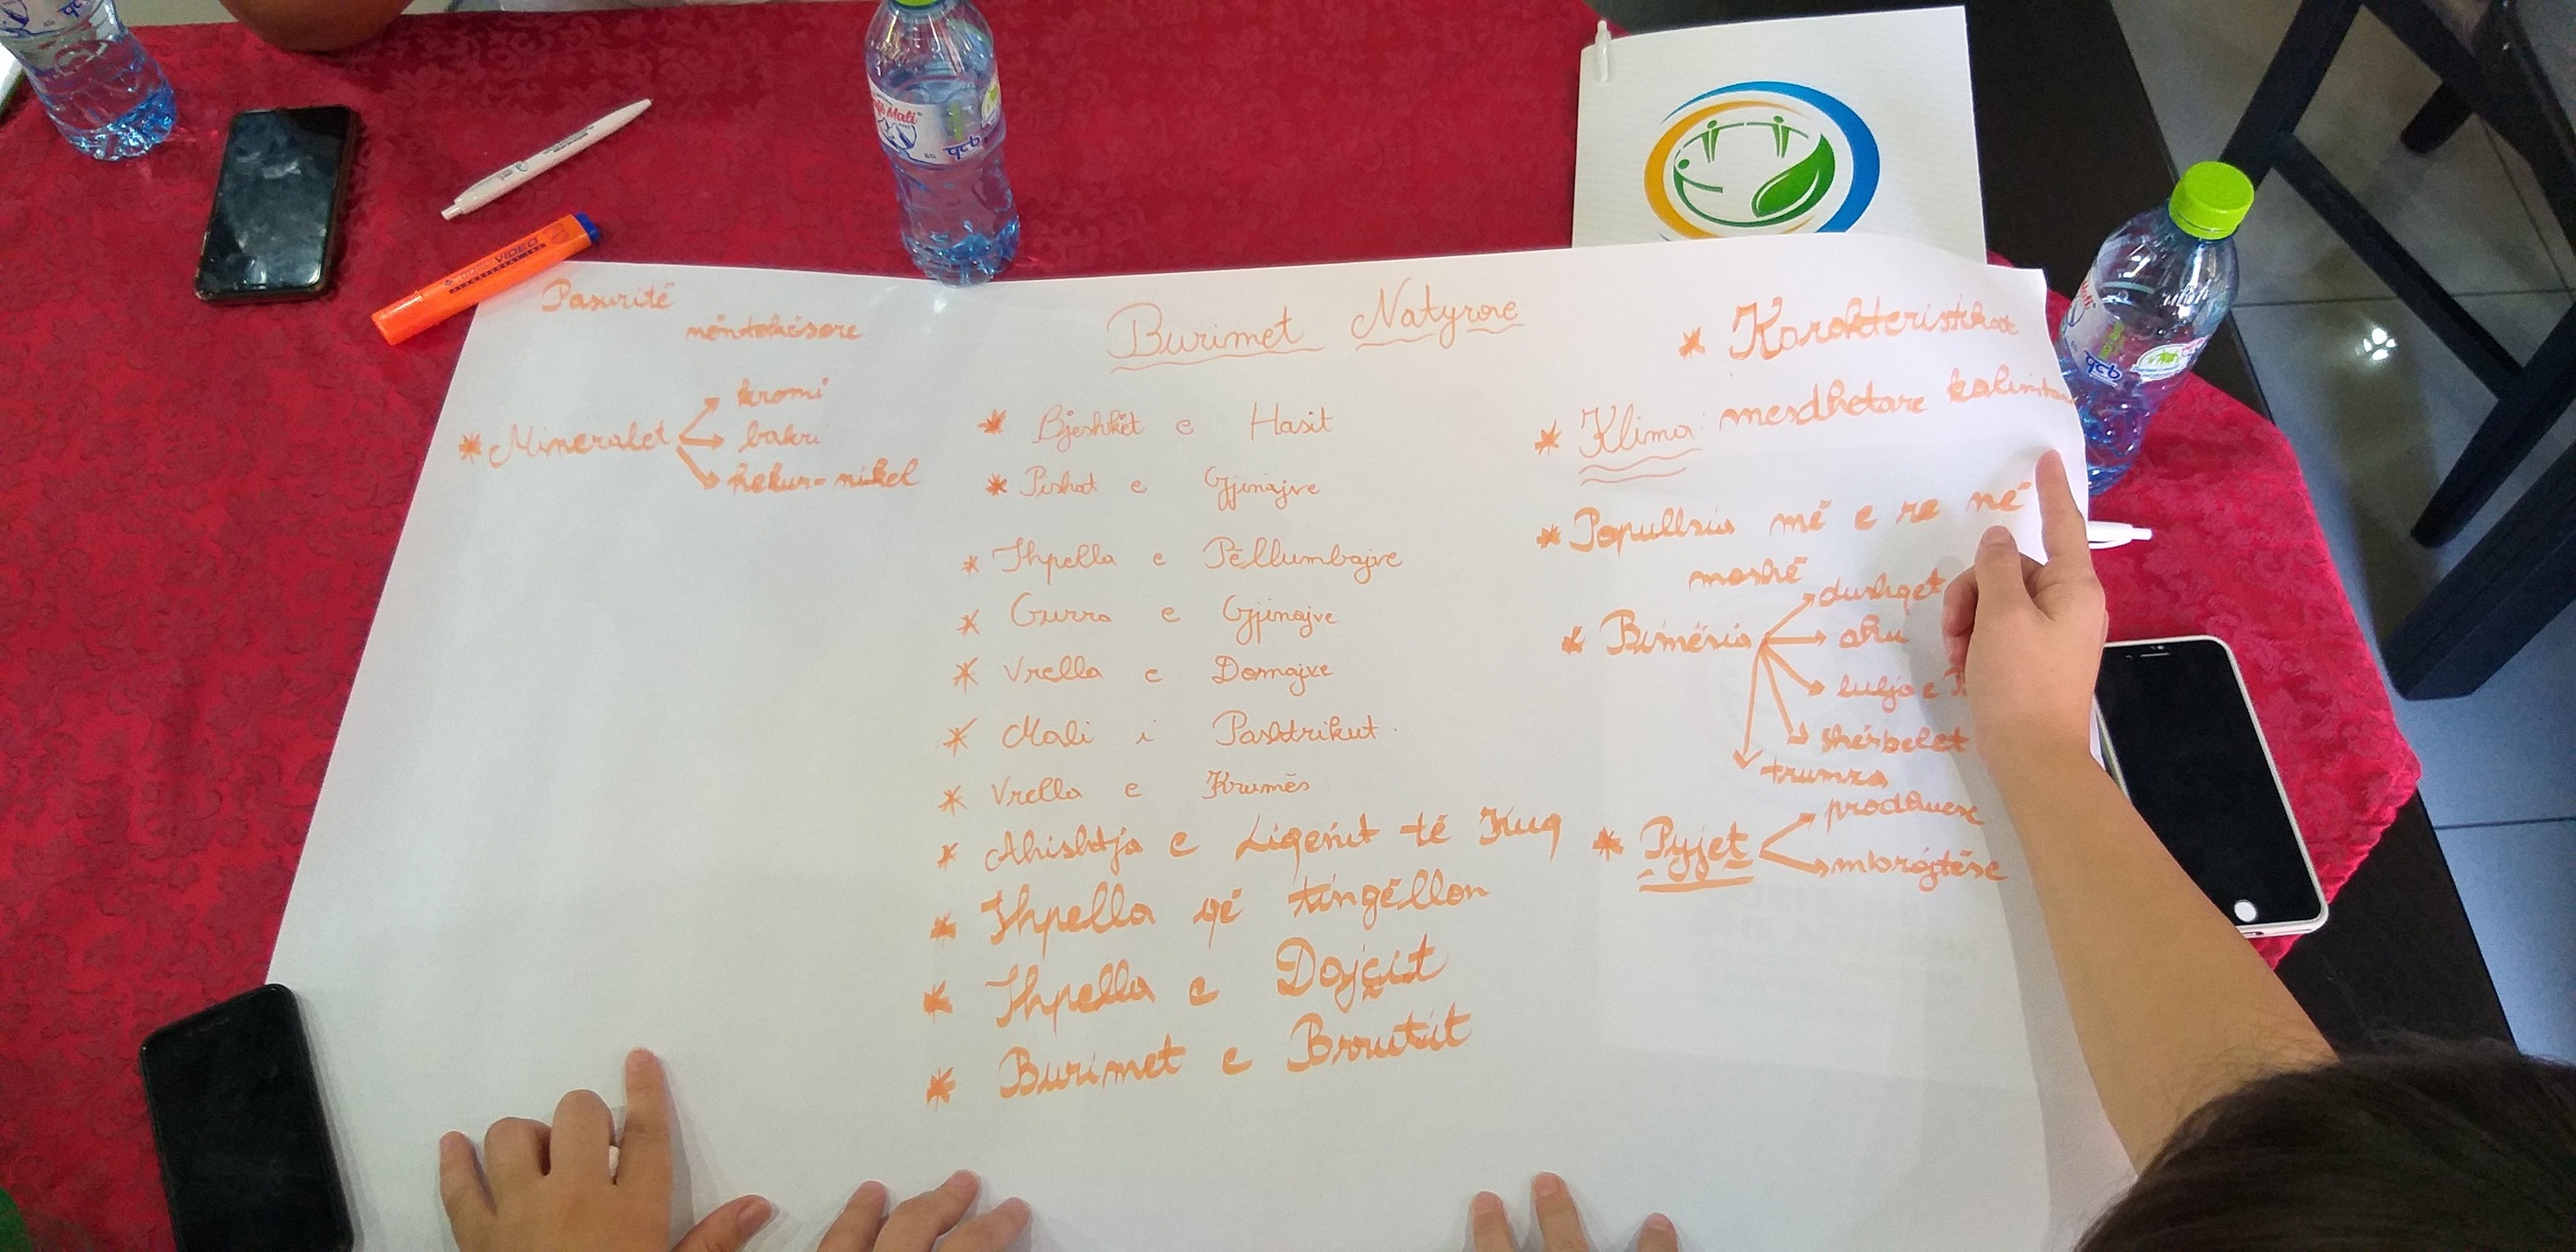 Pasuritë
nëntokësore
* Mineralet
kromi
bakri
hekur-nikel
Burimet Natyrore
* Bjeshkët e Hasit
* Pishat e Gjinajve
* Shpella e Pëllumbajve
* Gurra e Gjinajve
* Vrella e Domajve
* Mali i Pashtrikut
* Vrella e Krumës
* Ahishtja e Liqenit të Kuq
* Shpella që tingëllon
* Shpella e Dojçit
* Burimet e Brrutit
* Karakteristikat
* Klima mesdhetare
* Popullsia më e re në
moshë
* Bimësia
dushqet
ahu
lulja e
sherbelet
trumza
* Pyjet
prodhuese
mbrojtëse
VIDEO
Mali
qcb
qcb